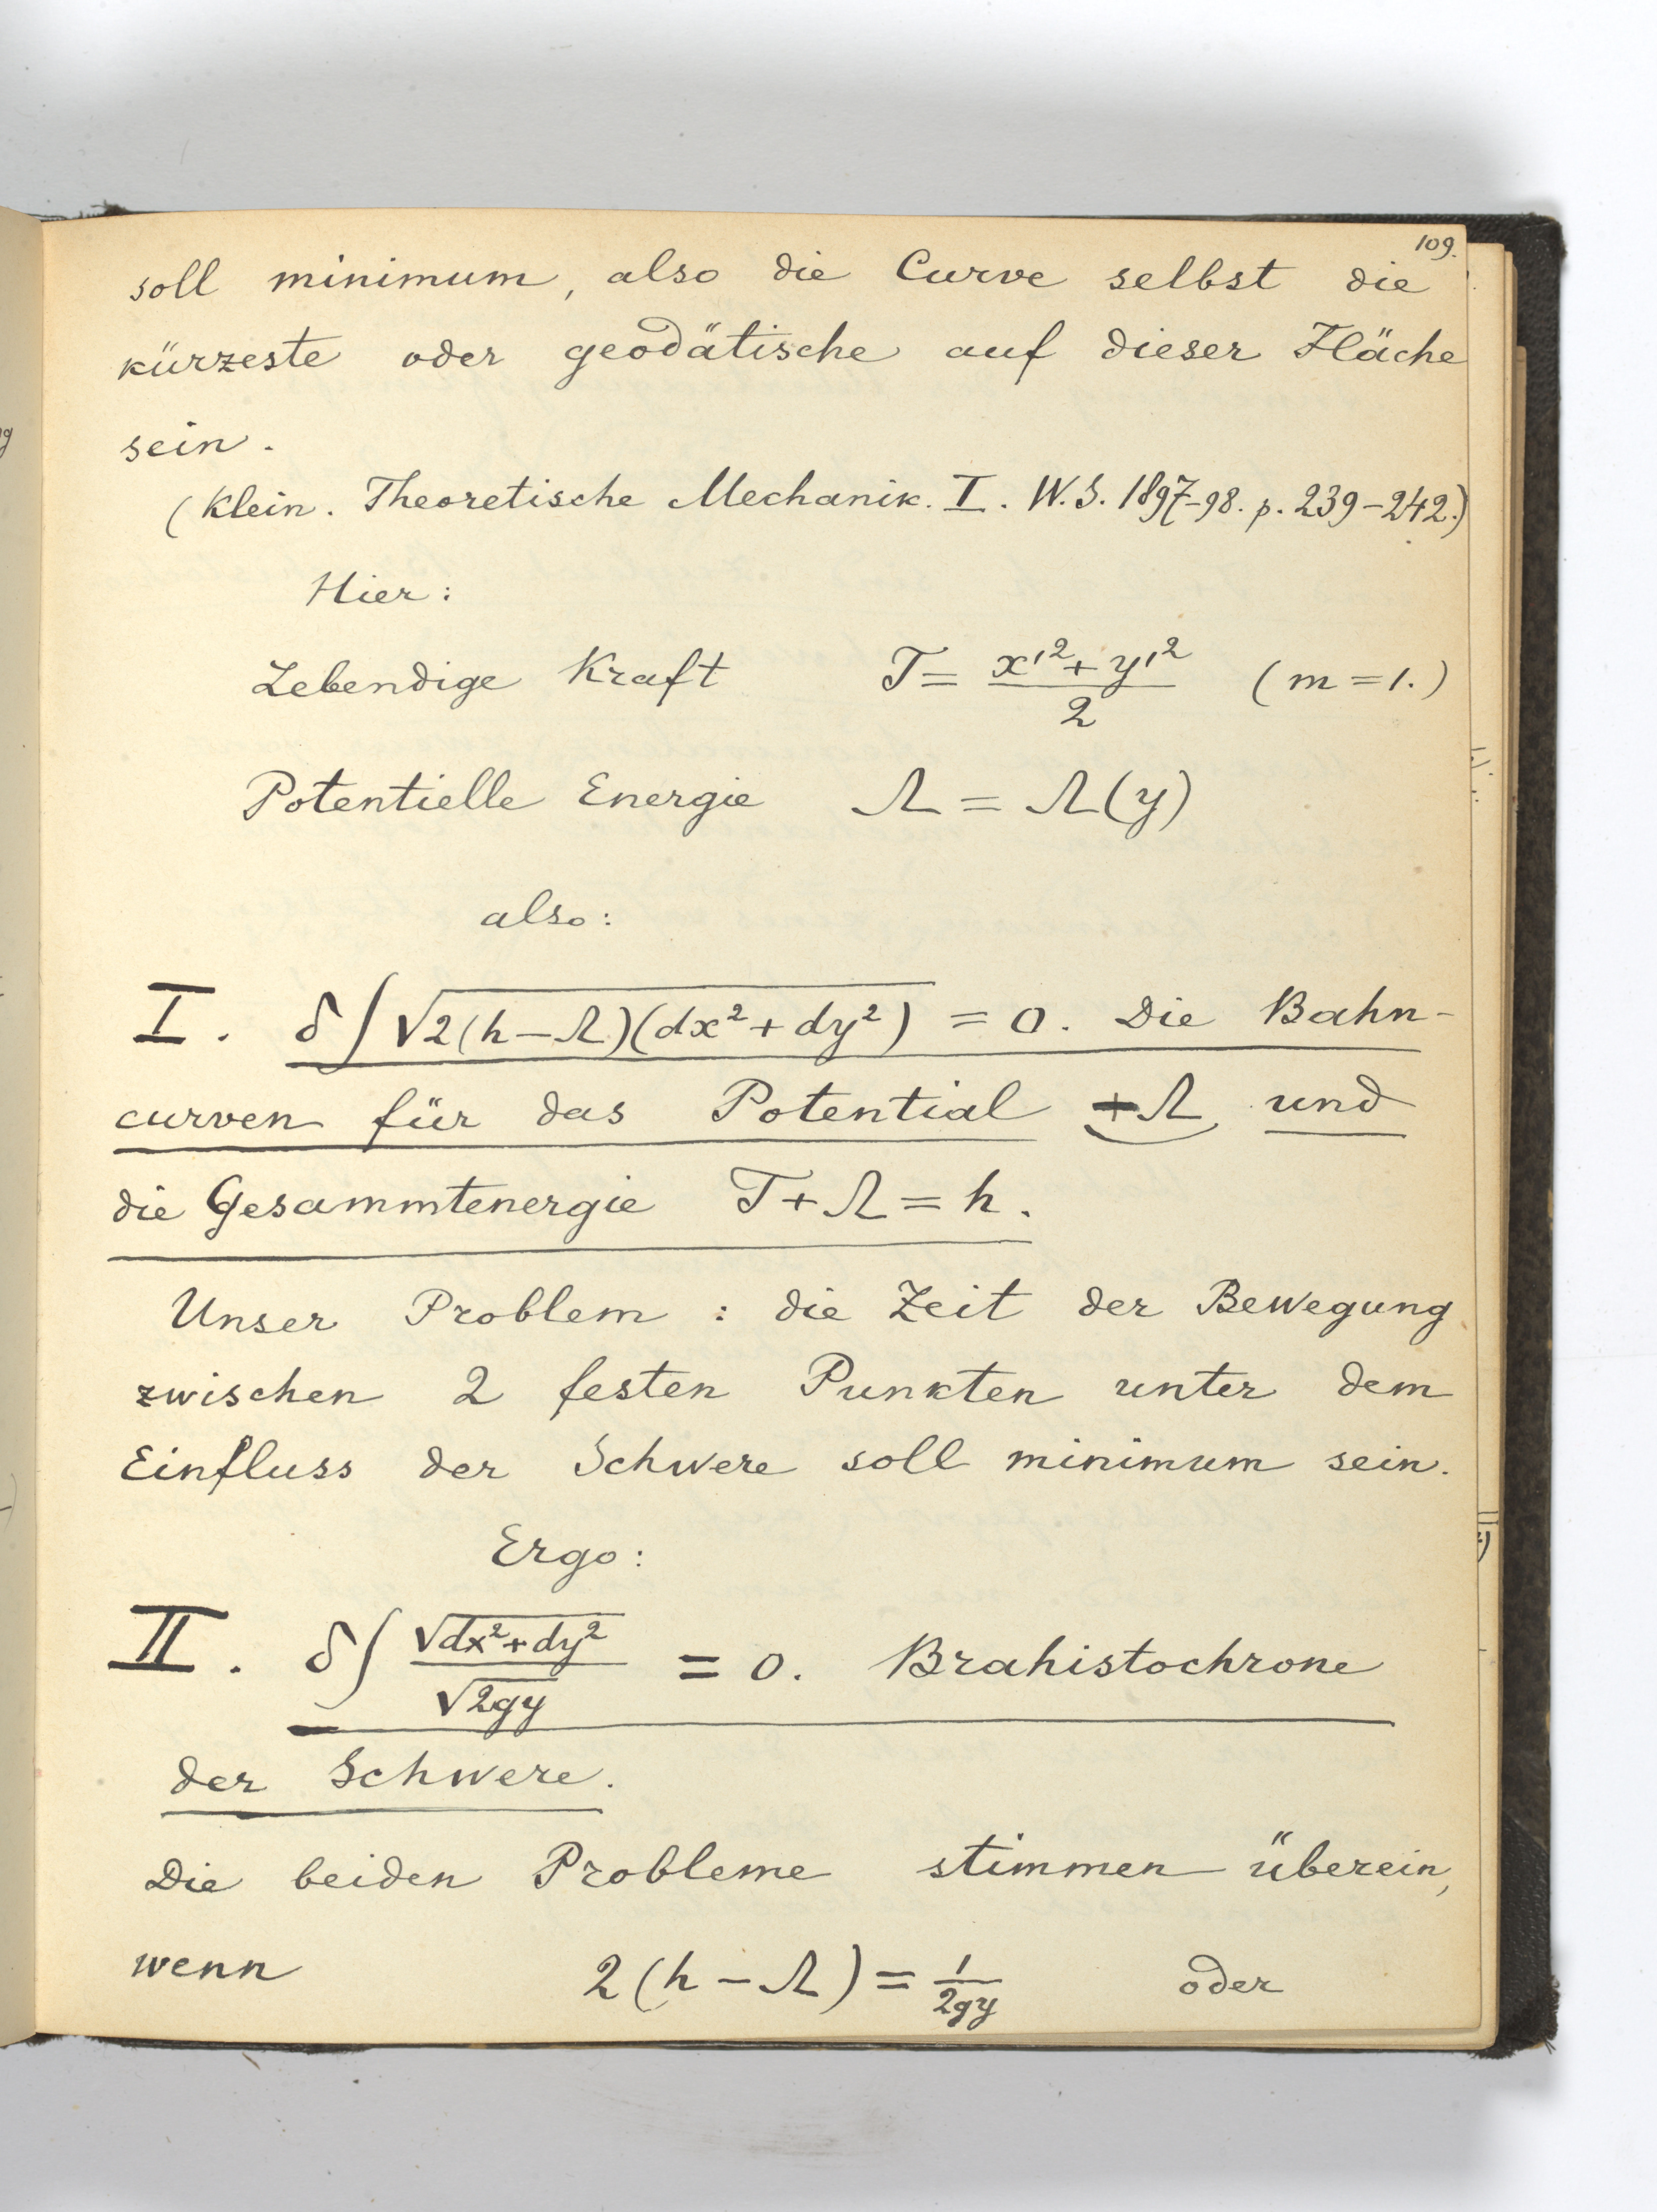 109.
soll minimum, also die Curve selbst die
kürzeste oder geodätische auf dieser Fläche
sein.
(Klein. Theoretische Mechanik. I. W.S. 1897-98. p. 239-242.)
Hier:
Lebendige Kraft T = (x'² + y'²)/2 (m = 1.)
Potentielle Energie Λ = Λ(y)
also:
I. δ∫√(2(h - Λ)(dx² + dy²)) = 0. Die Bahn-
curven für das Potential +Λ und
die Gesammtenergie T + Λ = h.
Unser Problem : die Zeit der Bewegung
zwischen 2 festen Punkten unter dem
Einfluss der Schwere soll minimum sein.
Ergo:
II. δ∫ √(dx² + dy²)/√(2gy) = 0. Brahistochrone
der Schwere.
Die beiden Probleme stimmen überein,
wenn 2(h - Λ) = 1/(2gy) oder